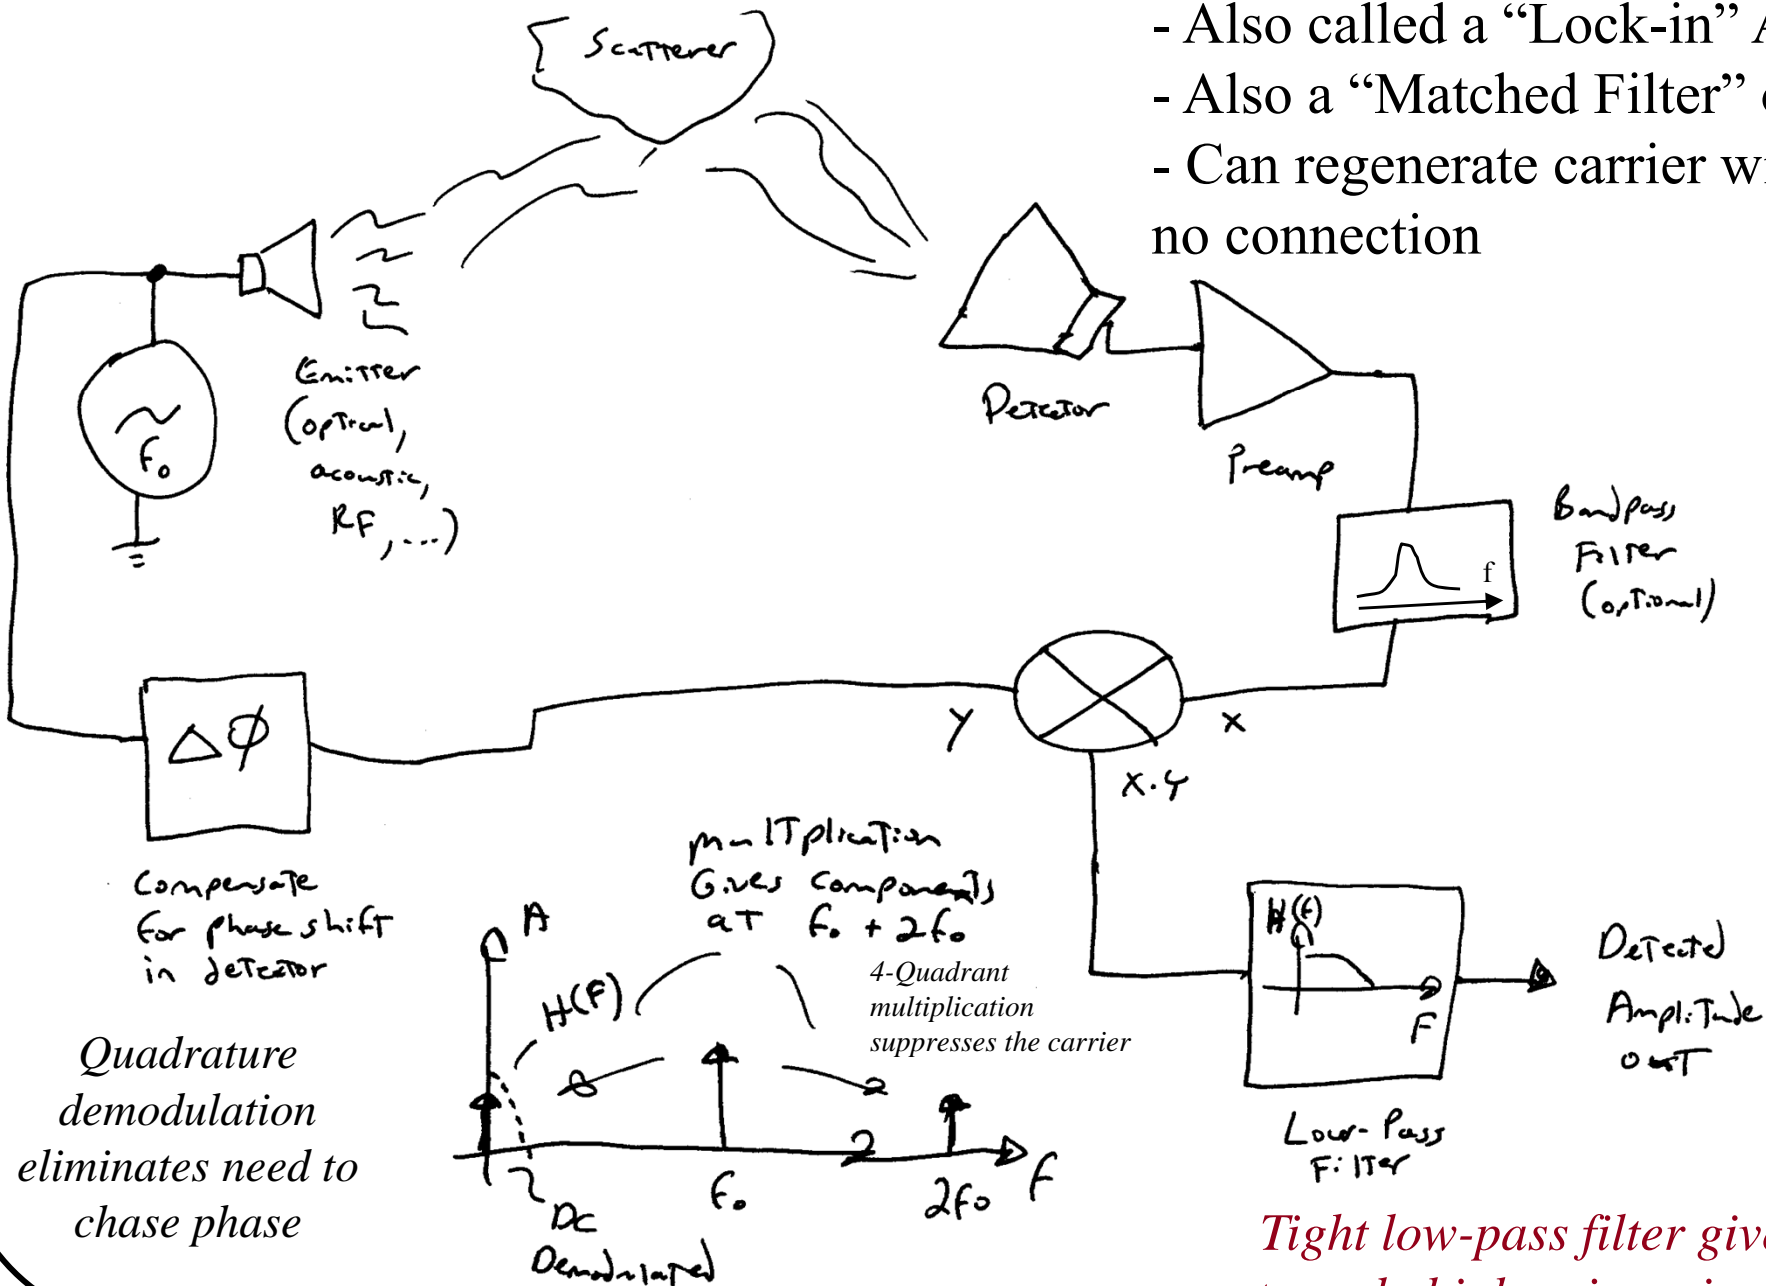 - Also called a “Lock-in” A
- Also a “Matched Filter”
- Can regenerate carrier wi
no connection
Scatterer
Emitter
(optical,
acoustic,
RF, ...)
f₀
Detector
Preamp
Bandpass
Filter
(optional)
f
Δφ
Y
X
X·Y
Compensate
for phase shift
in detector
multplication
Gives components
at f₀ + 2f₀
4-Quadrant
multiplication
suppresses the carrier
A
H(F)
f₀
2f₀
f
DC
Demodulated
H(f)
F
Low-Pass
Filter
Detected
Amplitude
out
Quadrature
demodulation
eliminates need to
chase phase
Tight low-pass filter give